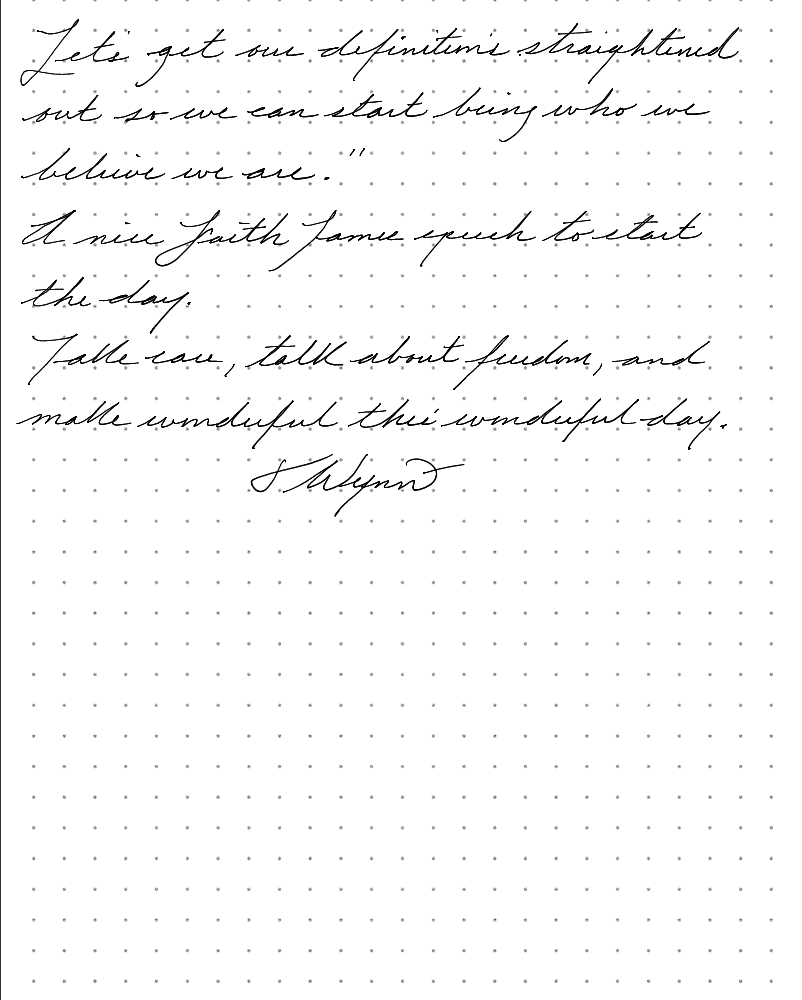 Let's get our definitions straightened
out so we can start being who we
believe we are."
A nice Faith James speech to start
the day.
Take care, talk about freedom, and
make wonderful this wonderful day.
S Wynn